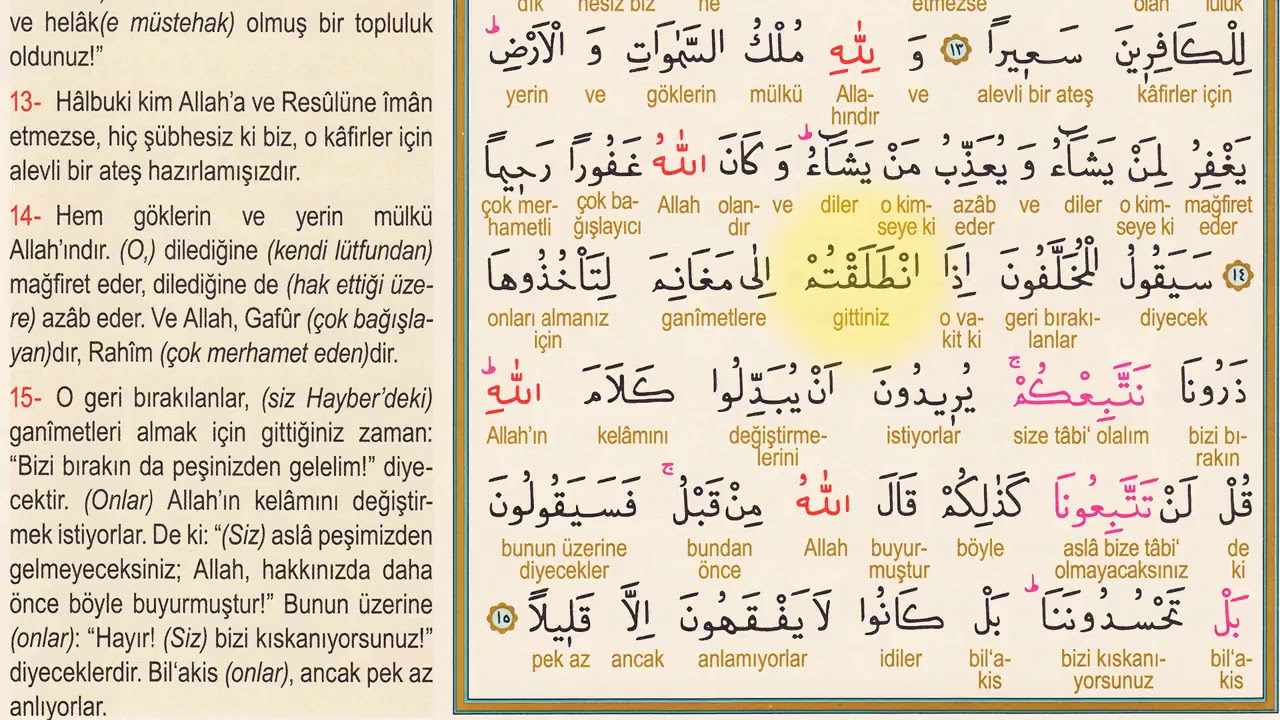 ve helâk(e müstehak) olmuş bir topluluk
oldunuz!”
13- Hâlbuki kim Allah’a ve Resûlüne îmân
etmezse, hiç şübhesiz ki biz, o kâfirler için
alevli bir ateş hazırlamışızdır.
14- Hem göklerin ve yerin mülkü
Allah’ındır. (O,) dilediğine (kendi lütfundan)
mağfiret eder, dilediğine de (hak ettiği üze-
re) azâb eder. Ve Allah, Gafûr (çok bağışla-
yan)dır, Rahîm (çok merhamet eden)dir.
15- O geri bırakılanlar, (siz Hayber’deki)
ganîmetleri almak için gittiğiniz zaman:
“Bizi bırakın da peşinizden gelelim!” diye-
cektir. (Onlar) Allah’ın kelâmını değiştir-
mek istiyorlar. De ki: “(Siz) aslâ peşimizden
gelmeyeceksiniz; Allah, hakkınızda daha
önce böyle buyurmuştur!” Bunun üzerine
(onlar): “Hayır! (Siz) bizi kıskanıyorsunuz!”
diyeceklerdir. Bil‘akis (onlar), ancak pek az
anlıyorlar.
لِلْكَافِرِينَ سَعِيرًا ١٣ وَ لِلّٰهِ مُلْكُ السَّمٰوَاتِ وَ الْاَرْضِۜ
kâfirler için alevli bir ateş ve Alla- mülkü göklerin ve yerin
hındır
يَغْفِرُ لِمَنْ يَشَٓاءُ وَ يُعَذِّبُ مَنْ يَشَٓاءُۜ وَ كَانَ اللّٰهُ غَفُورًا رَحِيمًا
mağfiret o kim- diler ve azâb o kim- diler ve olan- Allah çok ba- çok mer-
eder seye ki eder seye ki dır ğışlayıcı hametli
١٤ سَيَقُولُ الْمُخَلَّفُونَ اِذَا انْطَلَقْتُمْ اِلٰى مَغَانِمَ لِتَأْخُذُوهَا
diyecek geri bırakı- o va- gittiniz ganîmetlere onları almanız
lanlar kit ki için
ذَرُونَا نَتَّبِعْكُمْۚ يُرِيدُونَ اَنْ يُبَدِّلُوا كَلَامَ اللّٰهِۜ
bizi bı- size tâbi‘ olalım istiyorlar değiştirme- kelâmını Allah’ın
rakın lerini
قُلْ لَنْ تَتَّبِعُونَا كَذٰلِكُمْ قَالَ اللّٰهُ مِنْ قَبْلُۚ فَسَيَقُولُونَ
de aslâ bize tâbi‘ böyle buyur- Allah bundan bunun üzerine
ki olmayacaksınız muştur önce diyecekler
بَلْ تَحْسُدُونَنَاۜ بَلْ كَانُوا لَا يَفْقَهُونَ اِلَّا قَلِيلًا ١٥
bil‘a- bizi kıskanı- bil‘a- idiler anlamıyorlar ancak pek az
kis yorsunuz kis